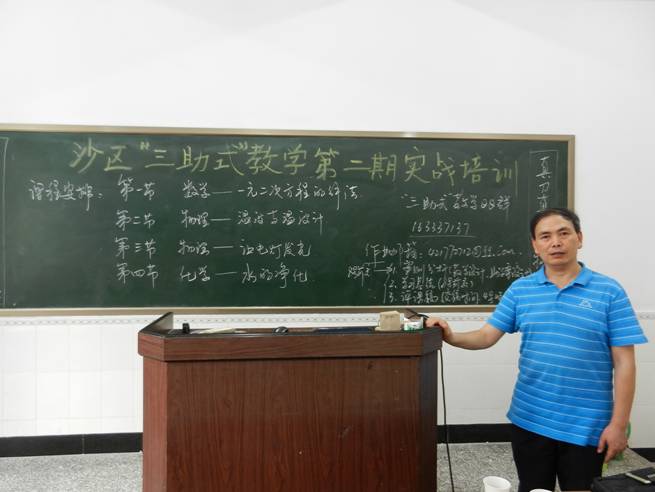 沙区"三助式"教学第二期实战培训
课程安排：第一节 数学——一元二次方程的解法
第二节 物理——温度与温度计
第三节 物理——让电灯发光
第四节 化学——水的净化
"三助式"教学QQ群
163337137
作业邮箱：
1.案例分析
2.
3.评课稿
真刀真